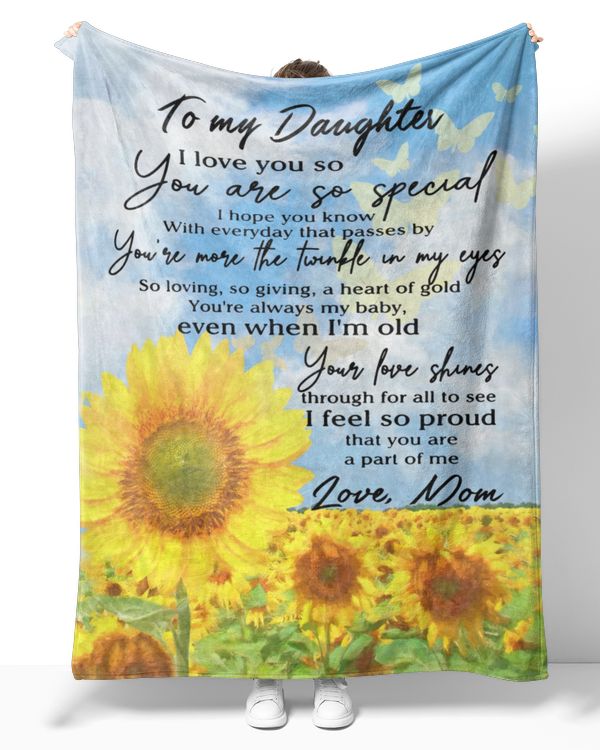 To my Daughter
I love you so
You are so special
I hope you know
With everyday that passes by
You're more the twinkle in my eyes
So loving, so giving, a heart of gold
You're always my baby,
even when I'm old
Your love shines
through for all to see
I feel so proud
that you are
a part of me
Love, Mom